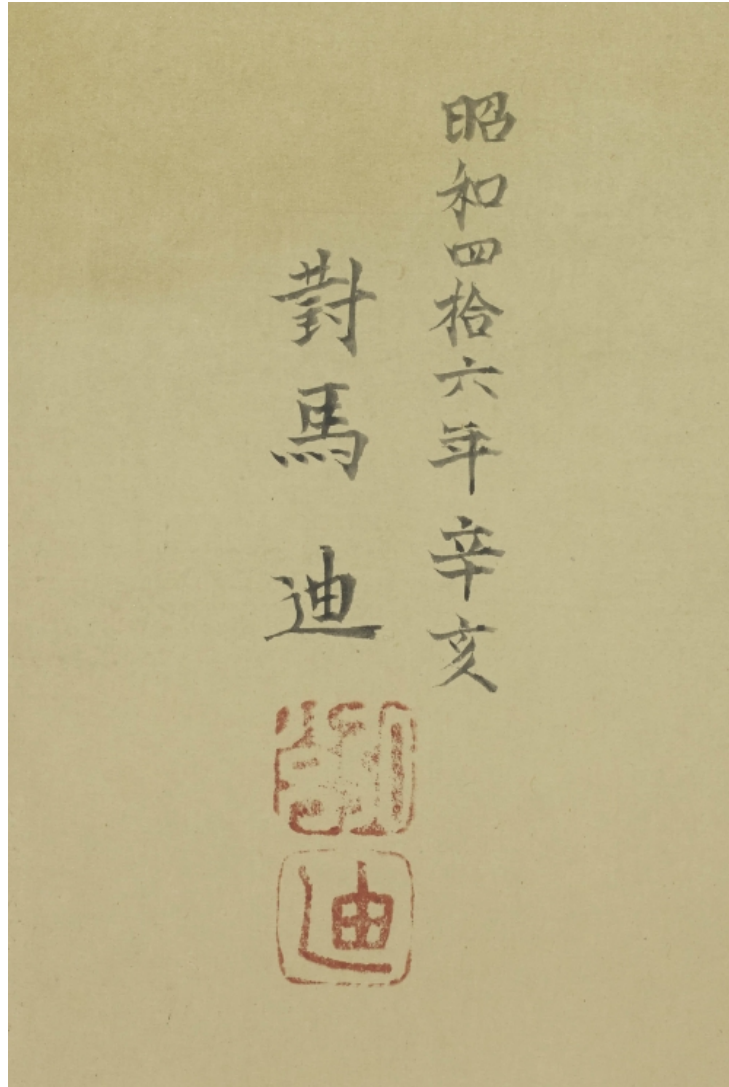 昭和四拾六年辛亥
對馬迪
迪